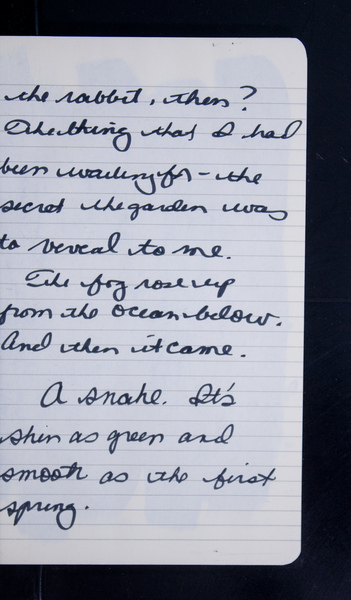 the rabbit, then?
The thing that I had
been waiting for - the
secret the garden was
to reveal to me.
The fog rose up
from the ocean below.
And then it came.
A snake. It's
skin as green and
smooth as the first
spring.